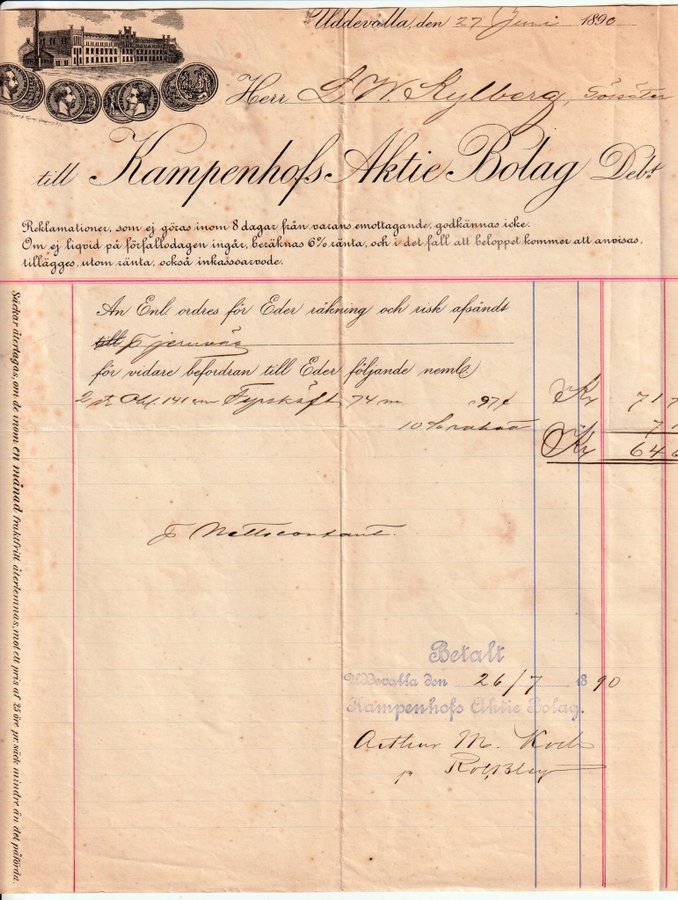 Uddevalla, den 27 Juni 1890
Herr L. W. Kylberg,
till Kampenhofs Aktie Bolag Debt
Reklamationer, som ej göras inom 8 dagar från varans emottagande, godkännas icke.
Om ej liqvid på förfallodagen ingår, beräknas 6% ränta, och i det fall att beloppet kommer att anvisas,
tillägges, utom ränta, också inkassoarvode.
An Enl. ordres för Eder räkning och risk afsändt
till
för vidare befordran till Eder följande neml.
2 st Obl. 141 cm Fyrskäft 74 m " 97 Kr 717
10% rabatt 71
Kr 646
Nettocontant.
Betalt
Uddevalla den 26/7 1890
Kampenhofs Aktie Bolag.
Arthur M. Koch
Säckar återtagas, om de inom en månad fraktfritt återlemnas, mot ett pris af 25 öre pr. säck mindre än det påförda.